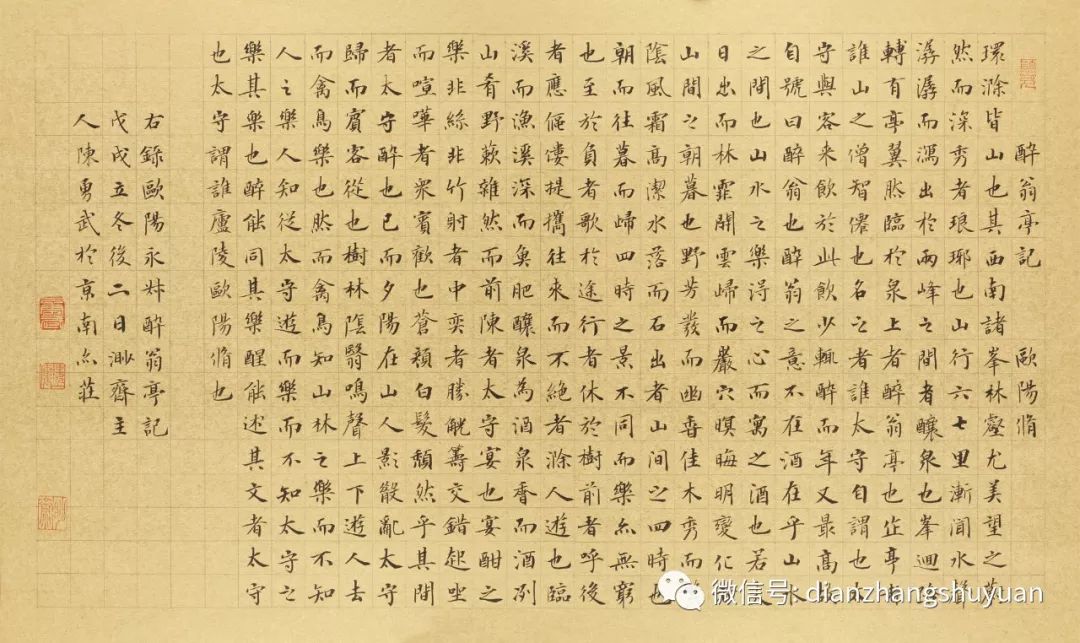 醉翁亭記 歐陽脩
環滁皆山也其西南諸峯林壑尤美望之蔚
然而深秀者琅琊也山行六七里漸聞水聲
潺潺而瀉出於兩峰之間者釀泉也峯迴路
轉有亭翼然臨於泉上者醉翁亭也作亭者
誰山之僧智僊也名之者誰太守自謂也太
守與客来飲於此飲少輒醉而年又最高故
自號曰醉翁也醉翁之意不在酒在乎山水
之間也山水之樂得之心而寓之酒也若夫
日出而林霏開雲歸而巖穴暝晦明變化
山間之朝暮也野芳發而幽香佳木秀而
陰風霜高潔水落而石出者山间之四時也
朝而往暮而歸四時之景不同而樂亦無窮
也至於負者歌於途行者休於樹前者呼後
者應傴僂提攜往来而不絕者滁人遊也臨
溪而漁溪深而魚肥釀泉為酒泉香而酒冽
山肴野蔌雜然而前陳者太守宴也宴酣之
樂非絲非竹射者中奕者勝觥籌交錯起坐
而喧嘩者眾賓歡也蒼顏白髮頹然乎其間
者太守醉也已而夕陽在山人影散亂太守
歸而賓客從也樹林陰翳鳴聲上下遊人去
而禽鳥樂也然而禽鳥知山林之樂而不知
人之樂人知從太守遊而樂而不知太守之
樂其樂也醉能同其樂醒能述其文者太守
也太守謂誰廬陵歐陽脩也
右錄歐陽永叔醉翁亭記
戊戌立冬後二日渺齋主
人陳勇武於京南亦莊
微信号: dianzhangshuyuan